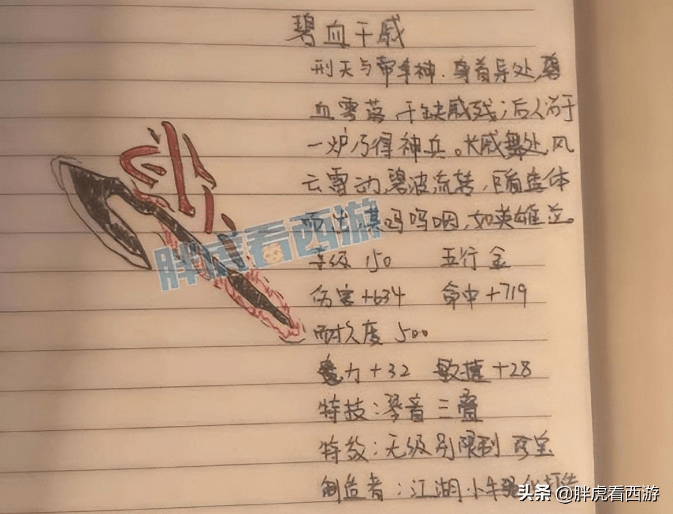 碧血干戚
刑天与帝争神.身首异处,碧
血零落.干缺戚残;后人溶于
一炉乃得神兵。长戚舞处,风
云雷动,碧波流转,
而出,其鸣呜咽,如英雄泣
等级 150 五行 金
伤害+634 命中+719
耐久度 500
魔力+32 敏捷+28
特技:琴音三叠
特效:无级别限制 珍宝
制造者:江湖小牛 打造
胖虎看西游
头条 @胖虎看西游